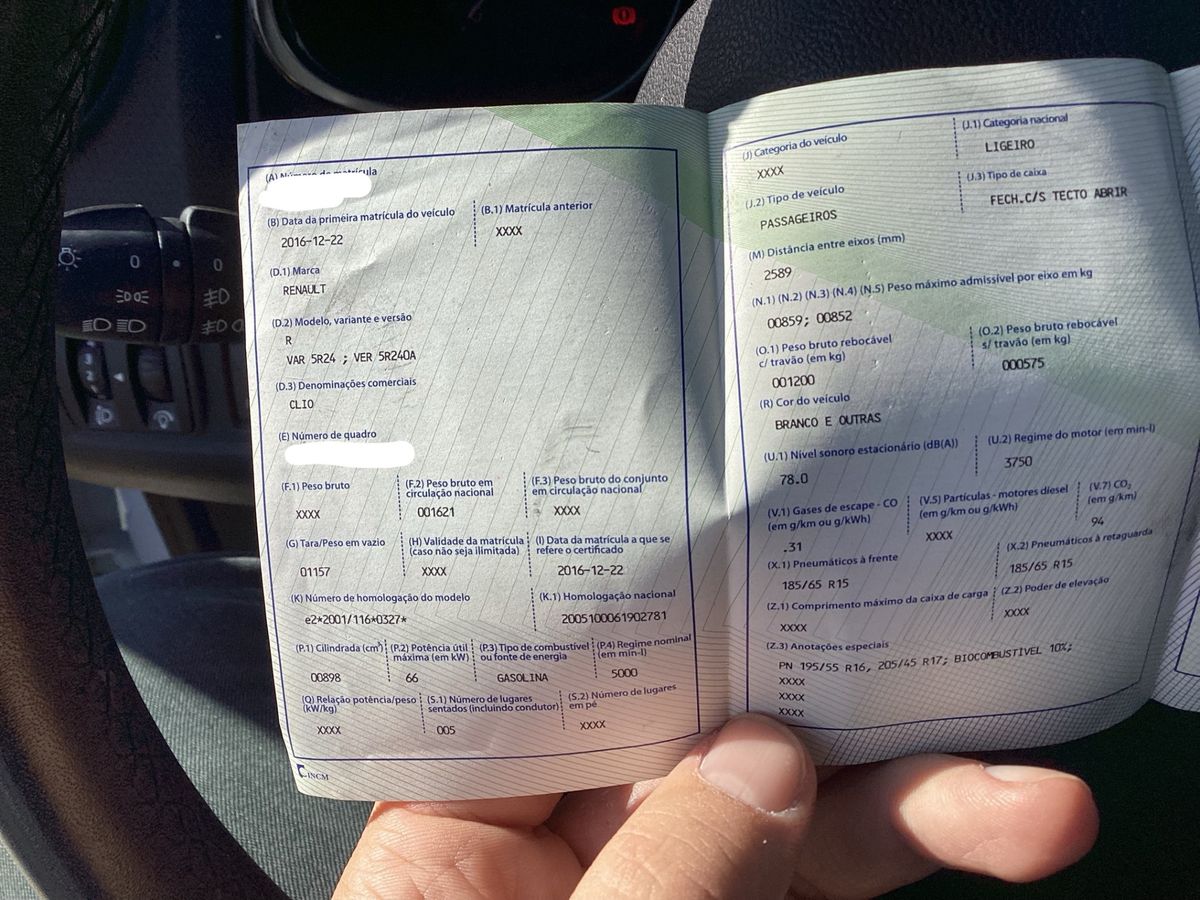 (A) Número de matrícula
(B) Data da primeira matrícula do veículo
(B.1) Matrícula anterior
2016-12-22
XXXX
(D.1) Marca
RENAULT
(D.2) Modelo, variante e versão
R
VAR 5R24 ; VER 5R240A
(D.3) Denominações comerciais
CLIO
(E) Número de quadro
(F.1) Peso bruto
(F.2) Peso bruto em
circulação nacional
(F.3) Peso bruto do conjunto
em circulação nacional
XXXX
001621
XXXX
(G) Tara/Peso em vazio
(H) Validade da matrícula
(caso não seja ilimitada)
(I) Data da matrícula a que se
refere o certificado
01157
XXXX
2016-12-22
(K) Número de homologação do modelo
(K.1) Homologação nacional
e2*2001/116*0327*
2005100061902781
(P.1) Cilindrada (cm³)
(P.2) Potência útil
máxima (em kW)
(P.3) Tipo de combustível
ou fonte de energia
(P.4) Regime nominal
(em min-l)
00898
66
GASOLINA
5000
(Q) Relação potência/peso
(kW/kg)
(S.1) Número de lugares
sentados (incluindo condutor)
(S.2) Número de lugares
em pé
XXXX
005
XXXX
INCM
(J) Categoria do veículo
(J.1) Categoria nacional
XXXX
LIGEIRO
(J.2) Tipo de veículo
(J.3) Tipo de caixa
PASSAGEIROS
FECH.C/S TECTO ABRIR
(M) Distância entre eixos (mm)
2589
(N.1) (N.2) (N.3) (N.4) (N.5) Peso máximo admissível por eixo em kg
00859; 00852
(O.1) Peso bruto rebocável
c/ travão (em kg)
(O.2) Peso bruto rebocável
s/ travão (em kg)
001200
000575
(R) Cor do veículo
BRANCO E OUTRAS
(U.1) Nível sonoro estacionário (dB(A))
(U.2) Regime do motor (em min-l)
78.0
3750
(V.1) Gases de escape - CO
(em g/km ou g/kWh)
(V.5) Partículas - motores diesel
(em g/km ou g/kWh)
(V.7) CO₂
(em g/km)
.31
XXXX
94
(X.1) Pneumáticos à frente
(X.2) Pneumáticos à retaguarda
185/65 R15
185/65 R15
(Z.1) Comprimento máximo da caixa de carga
(Z.2) Poder de elevação
XXXX
XXXX
(Z.3) Anotações especiais
PN 195/55 R16, 205/45 R17; BIOCOMBUSTIVEL 10%;
XXXX
XXXX
XXXX
0
0